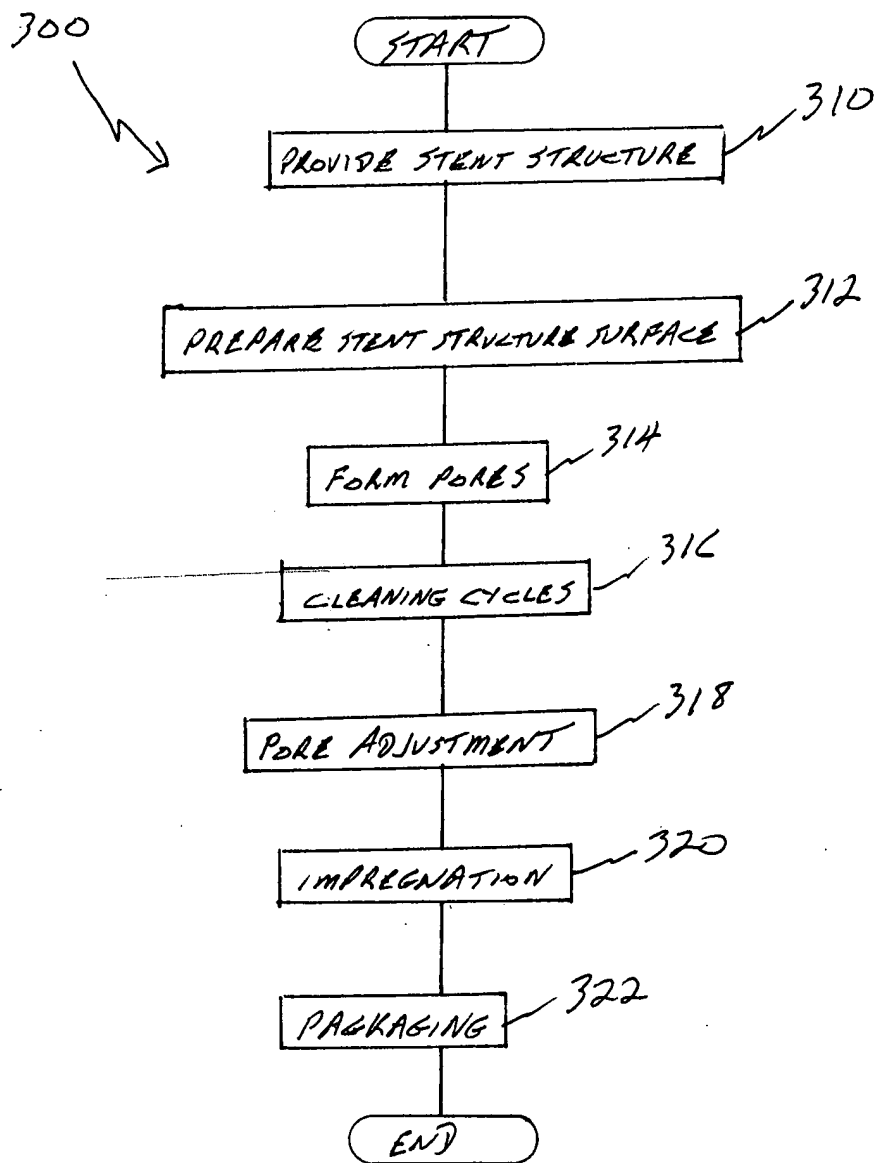 300
START
310
PROVIDE STENT STRUCTURE
312
PREPARE STENT STRUCTURE SURFACE
314
FORM PORES
316
CLEANING CYCLES
318
PORE ADJUSTMENT
320
IMPREGNATION
322
PACKAGING
END